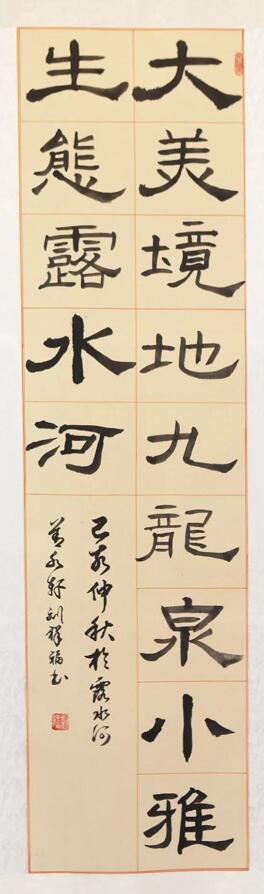 大美境地九龍泉小雅
生態露水河
己亥仲秋於露水河
善水軒劉祥福書